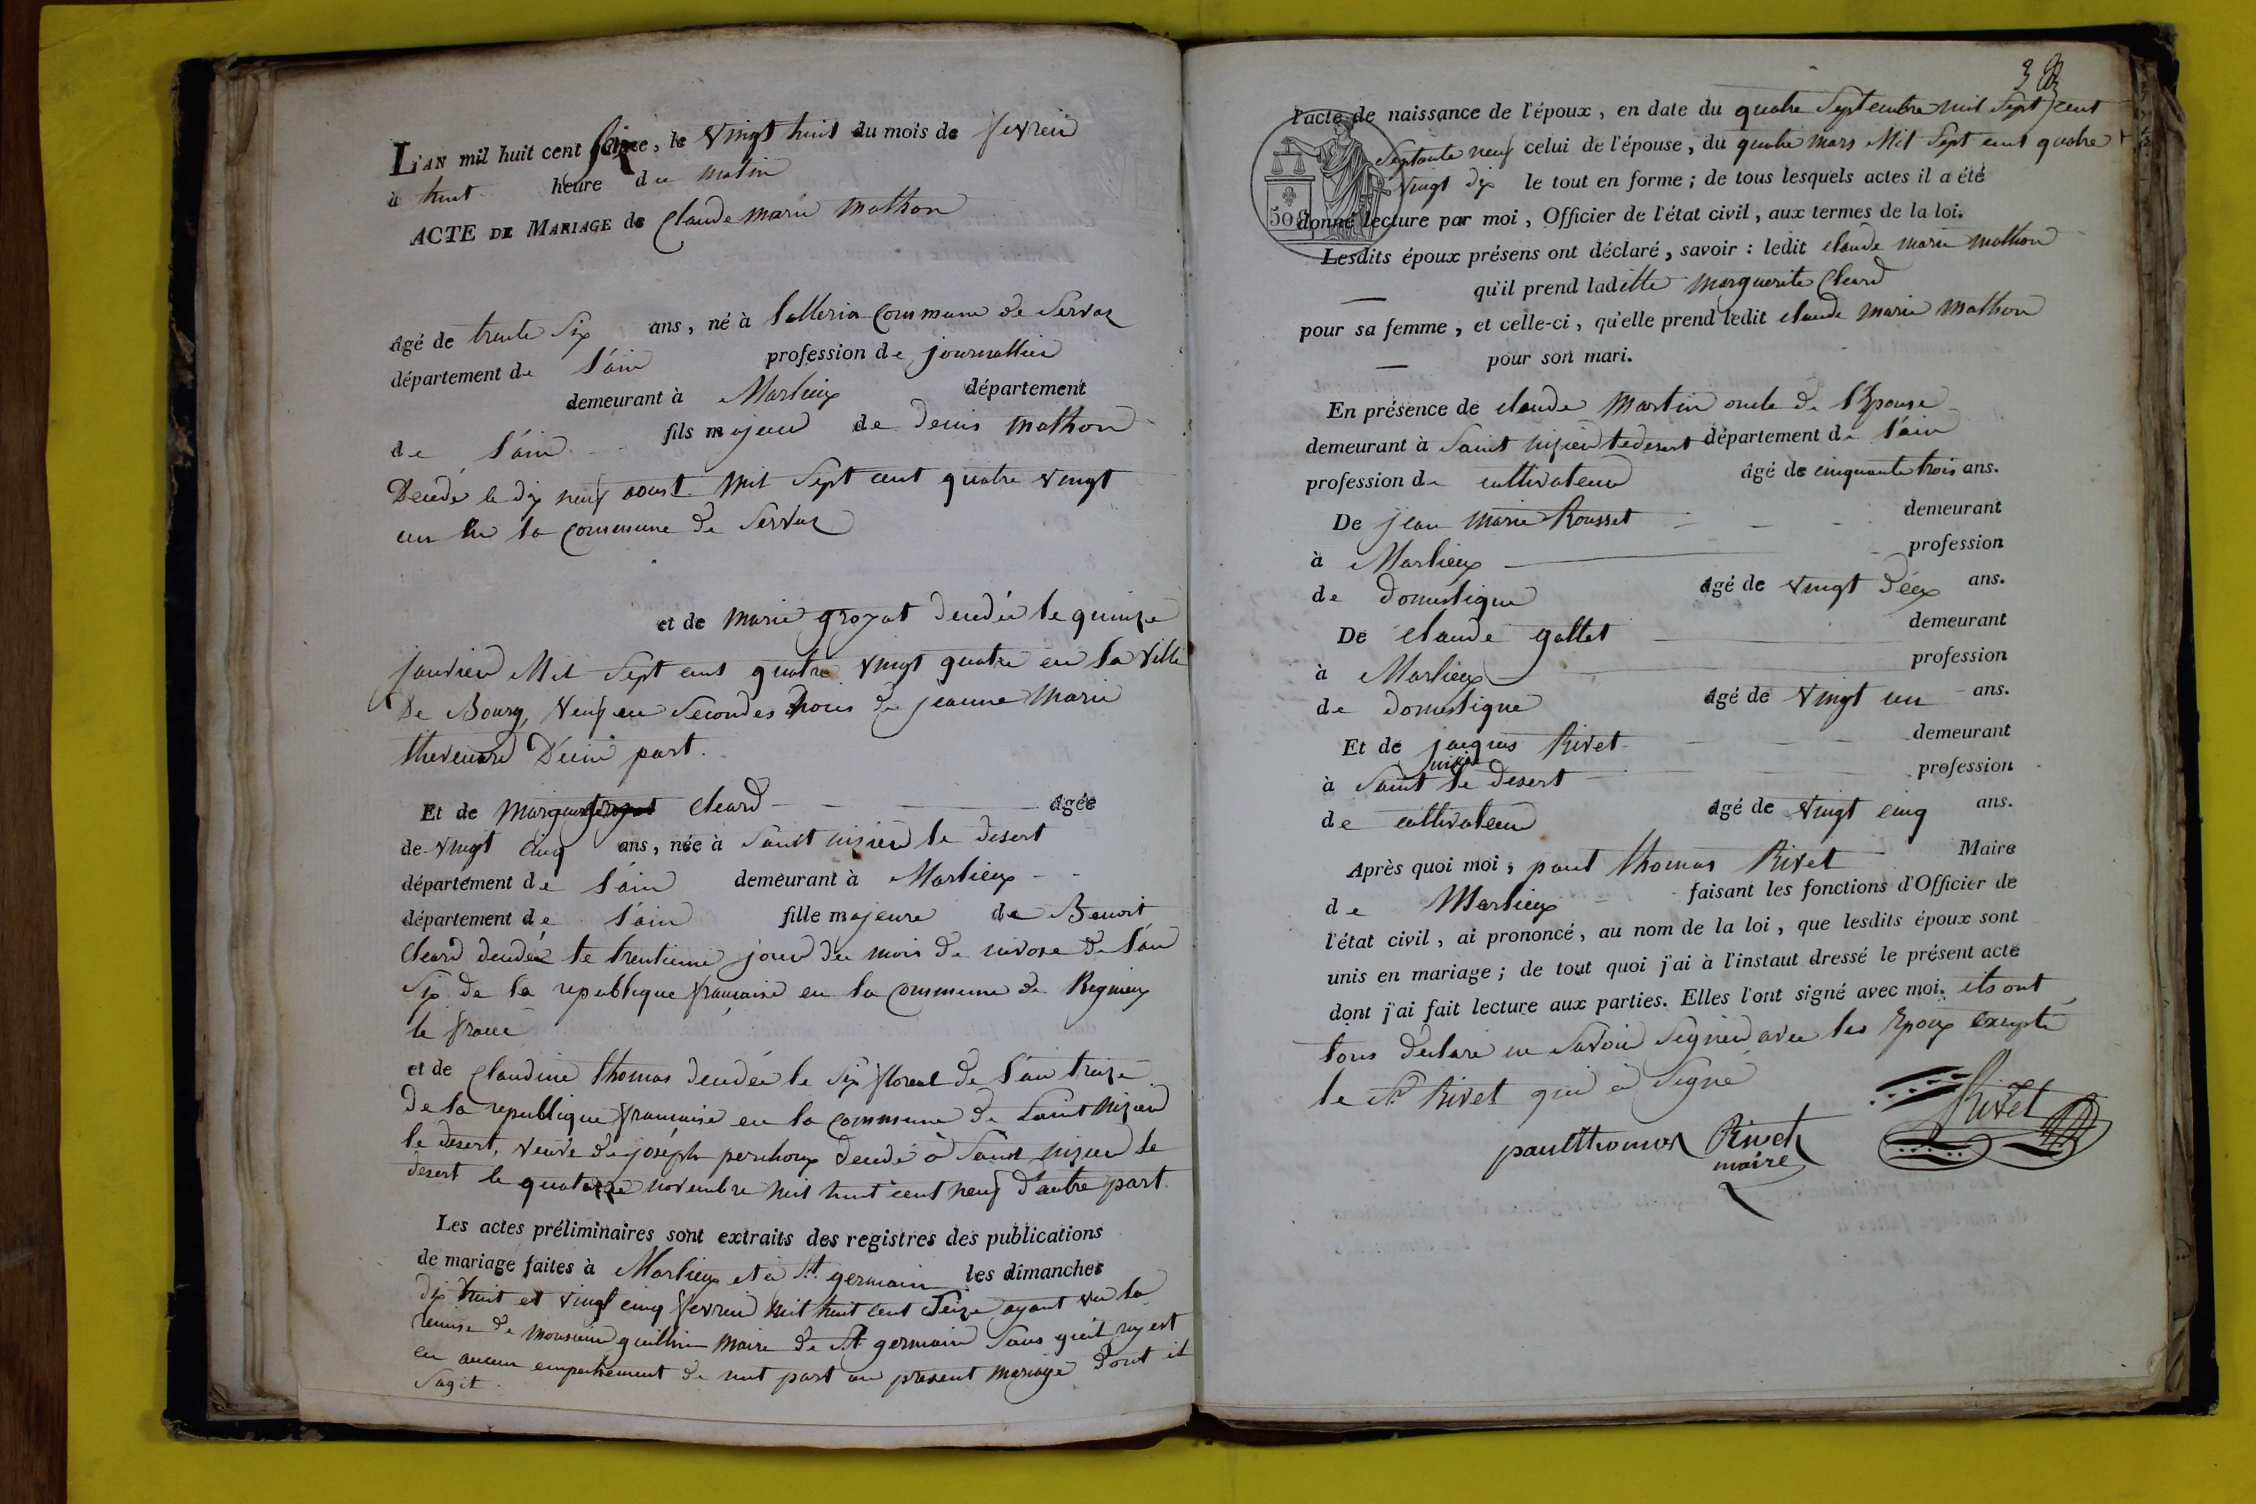 L'AN mil huit cent seize, le vingt huit du mois de fevrier
à huit heure du matin
ACTE DE MARIAGE de Claude marie mathon
âgé de trente six ans, né à commune de Servas
département de l'ain profession de journallier
demeurant à Marlieux département
de l'ain fils majeur de denis mathon
Decedé le dix neuf aoust mil sept cent quatre vingt
un en la commune de Servas
et de marie groyat decedée le quinze
janvier mil sept cent quatre vingt quatre en la ville
De Bourg, veuf en secondes noces de jeanne marie
thevenard D'une part.
Et de Marguerite Cleard âgée
de vingt cinq ans, née à Saint nizier le desert
département de l'ain demeurant à Marlieux
département de l'ain fille majeure de Benoit
Cleard decedé le trentieme jour du mois de nivose de l'an
six de la republique francaise en la commune de Rignieux
le franc
et de Claudine thomas decedée le six floreal de l'an treize
de la republique francaise en la commune de Saint nizier
le desert, veuve de joséph peruchoux decedé à Saint nizier le
desert le quatorze novembre mil huit cent neuf d'autre part.
Les actes préliminaires sont extraits des registres des publications
de mariage faites à Marlieux et à St germain les dimanches
dix huit et vingt cinq fevrier mil huit cent Seize ayant vu la
remise de monsieur guillin maire de St germain sans qu'il ny est
eu aucun empechement de nut part au present mariage dont il
sagit.
38
l'acte de naissance de l'époux, en date du quatre Septembre mil Sept cent
Septante neuf celui de l'épouse, du quatre mars Mil Sept cent quatre
vingt dix le tout en forme; de tous lesquels actes il a été
50
donné lecture par moi, Officier de l'état civil, aux termes de la loi.
Lesdits époux présens ont déclaré, savoir: ledit claude marie mathon
qu'il prend laditte marguerite Cleard
pour sa femme, et celle-ci, qu'elle prend ledit claude marie mathon
pour son mari.
En présence de claude martin oncle de l'Epouse
demeurant à Saint nizier le desert département de l'ain
profession de cultivateur âgé de cinquante trois ans.
De jean marie Rousset demeurant
à Marlieux profession
de domestique âgé de vingt deux ans.
De claude gallet demeurant
à Marlieux profession
de domestique âgé de vingt un ans.
Et de jacques Rivet demeurant
nizier
à Saint le desert profession
de cultivateur âgé de vingt cinq ans.
Après quoi moi, paul thomas Rivet Maire
de Marlieux faisant les fonctions d'Officier de
l'état civil, ai prononcé, au nom de la loi, que lesdits époux sont
unis en mariage; de tout quoi j'ai à l'instaut dressé le présent acte
dont j'ai fait lecture aux parties. Elles l'ont signé avec moi. ils ont
tous déclaré ne savoir signer avec les Epoux excepté
le Sr Rivet qui a signé
Rivet
paul thomas Rivet
maire